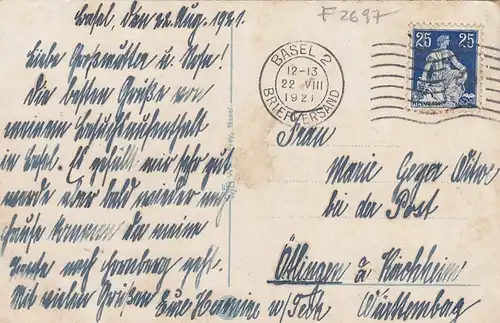 Basel, den 22. Aug. 1921.
Liebe Großmutter u. Rosa!
Die besten Grüße von
meinem Besuchsaufenthalt
in Basel. Es gefällt mir sehr gut
werde aber bald wieder nach
hause kommen da meine
nach Hornberg geht.
Mit vielen Grüßen
Eure Hermine
F 2697
BASEL 2
12-13
22 VIII
1921
BRIEFVERSAND
25 25
HELVETIA
Frau
Marie Geyer Witwe
bei der Post
Ötlingen a Kirchheim
u/Teck Württembag